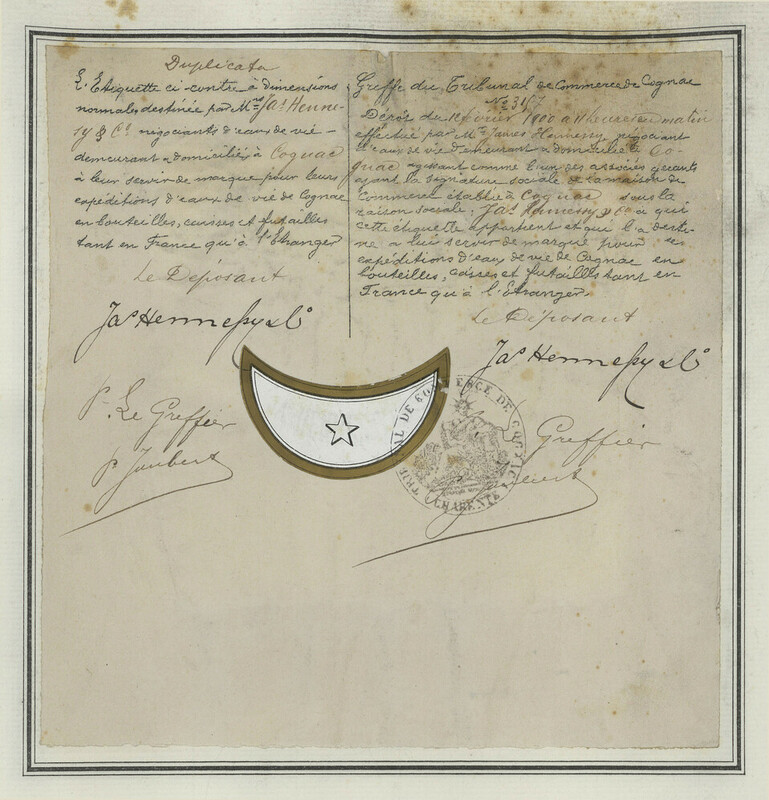 Duplicata
L'Etiquette ci-contre à dimensions
normales destinée par Mrs Jas Henne-
sy & Co négociants d'eaux de vie -
demeurant & domiciliés à Cognac
à leur servir de marque pour leurs
expéditions d'eaux de vie de Cognac
en bouteilles, caisses et futailles
tant en France qu'à l'Etranger
Le Déposant
Jas Hennessy & Co
Pr Le Greffier
P Jaubert
Greffe du Tribunal de Commerce de Cognac
Dépôt du février 1900 a heures du matin
effectué par Mr James Hennessy, négociant
d'eaux de vie demeurant & domicilié à Co-
gnac agissant comme l'un des associés gérants
ayant la signature sociale de la maison de
Commerce établie à Cognac sous la
raison sociale: Jas Hennessy & Co a qui
cette étiquette appartient et qui l'a desti-
né a leur servir de marque pour ses
expéditions d'eaux de vie de Cognac en
bouteilles, caisses et futailles tant en
France qu'à l'Etranger.
Le Déposant
Jas Hennessy & Co
Greffier
TRIBUNAL DE COMMERCE DE COGNAC
(CHARENTE)